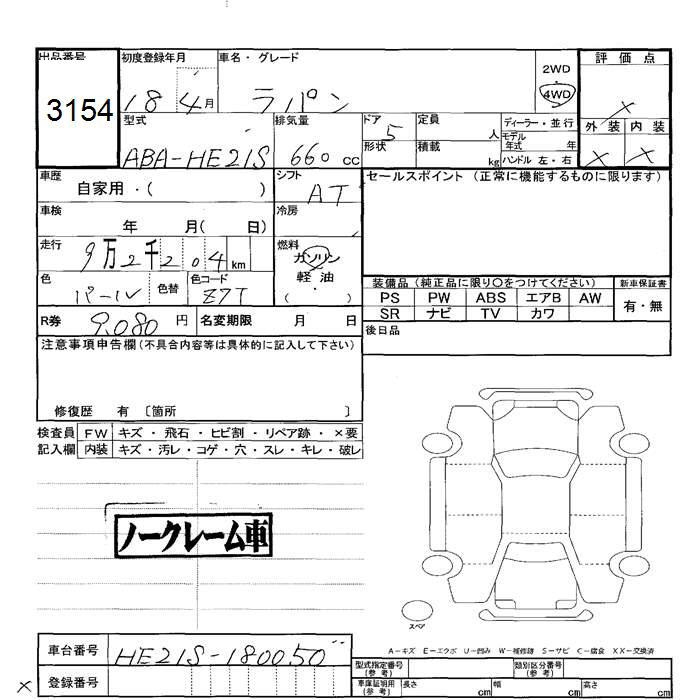 出品番号 初度登録年月 車名・グレード 評価点
3154 18 4月 ラパン 2WD 4WD ×
外装 内装
× ×
型式 排気量 ドア 5 定員 人 ディーラー・並行
ABA-HE21S 660 cc 形状 積載 kg モデル年式 年
ハンドル 左・右
車歴 自家用・( ) シフト AT セールスポイント (正常に機能するものに限ります)
車検 年 月( 日) 冷房
走行 9万2千204 km 燃料 ガソリン
軽油
( )
色 パール 色替 色コード Z7T
装備品 (純正品に限り○をつけてください) 新車保証書
PS PW ABS エアB AW 有・無
SR ナビ TV カワ
R券 9,080 円 名変期限 月 日 後日品
注意事項申告欄 (不具合内容等は具体的に記入して下さい)
修復歴 有 〔箇所 〕
検査員 FW キズ・飛石・ヒビ割・リペア跡・×要
記入欄 内装 キズ・汚レ・コゲ・穴・スレ・キレ・破レ
ノークレーム車
スペア
A-キズ E-エクボ U-凹み W-補修跡 S-サビ C-腐食 XX-交換済
車台番号 HE21S-180050
× 登録番号
型式指定番号 (参考) 類別区分番号 (参考)
車庫証明用 (参考) 長さ cm 幅 cm 高さ cm